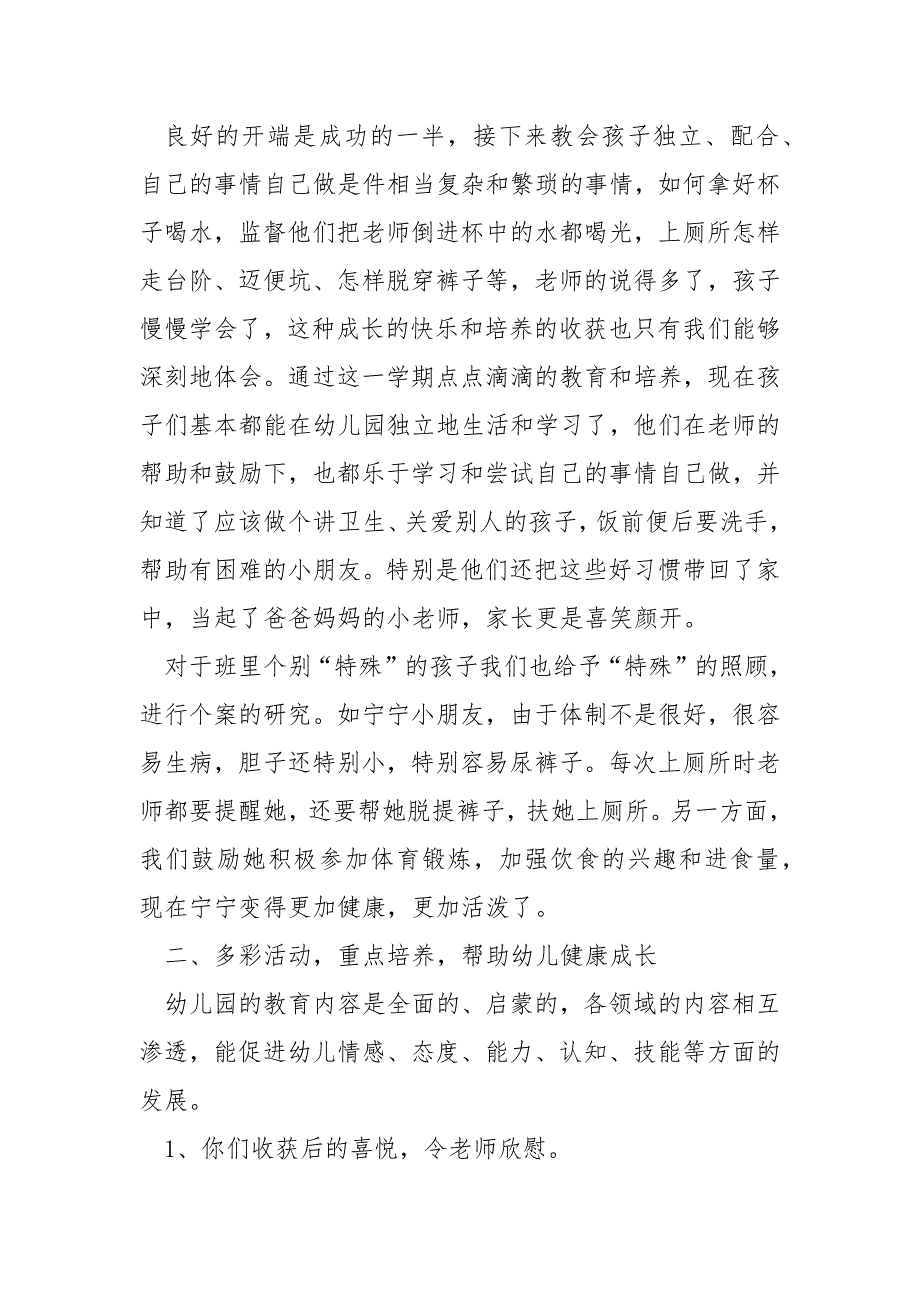 良好的开端是成功的一半，接下来教会孩子独立、配合、
自己的事情自己做是件相当复杂和繁琐的事情，如何拿好杯
子喝水，监督他们把老师倒进杯中的水都喝光，上厕所怎样
走台阶、迈便坑、怎样脱穿裤子等，老师的说得多了，孩子
慢慢学会了，这种成长的快乐和培养的收获也只有我们能够
深刻地体会。通过这一学期点点滴滴的教育和培养，现在孩
子们基本都能在幼儿园独立地生活和学习了，他们在老师的
帮助和鼓励下，也都乐于学习和尝试自己的事情自己做，并
知道了应该做个讲卫生、关爱别人的孩子，饭前便后要洗手，
帮助有困难的小朋友。特别是他们还把这些好习惯带回了家
中，当起了爸爸妈妈的小老师，家长更是喜笑颜开。
对于班里个别“特殊”的孩子我们也给予“特殊”的照顾，
进行个案的研究。如宁宁小朋友，由于体制不是很好，很容
易生病，胆子还特别小，特别容易尿裤子。每次上厕所时老
师都要提醒她，还要帮她脱提裤子，扶她上厕所。另一方面，
我们鼓励她积极参加体育锻炼，加强饮食的兴趣和进食量，
现在宁宁变得更加健康，更加活泼了。
二、多彩活动，重点培养，帮助幼儿健康成长
幼儿园的教育内容是全面的、启蒙的，各领域的内容相互
渗透，能促进幼儿情感、态度、能力、认知、技能等方面的
发展。
1、你们收获后的喜悦，令老师欣慰。